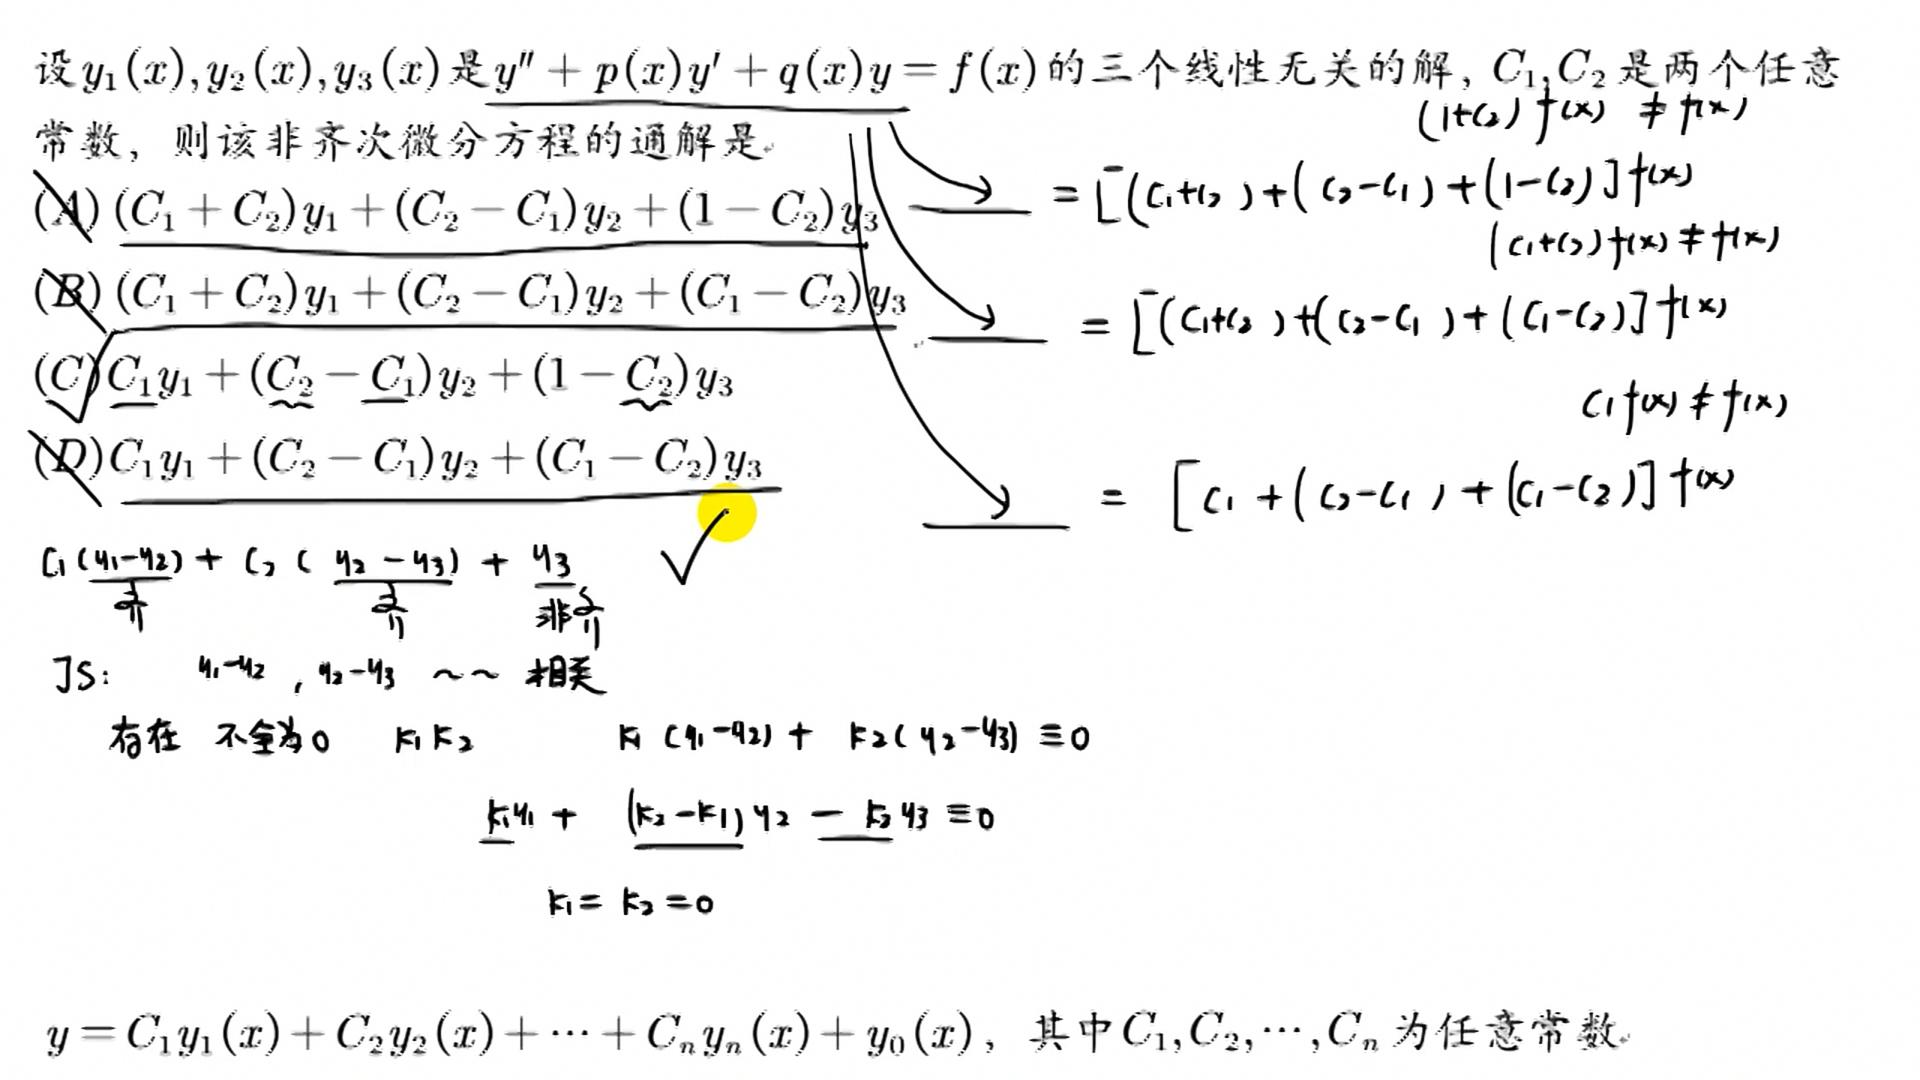 设 y₁(x), y₂(x), y₃(x) 是 y″ + p(x)y′ + q(x)y = f(x) 的三个线性无关的解, C₁, C₂ 是两个任意
常数, 则该非齐次微分方程的通解是.
(1+C₂) f(x) ≠ f(x)
(A) (C₁ + C₂)y₁ + (C₂ − C₁)y₂ + (1 − C₂)y₃
= [(C₁+C₂) + (C₂−C₁) + (1−C₂)] f(x)
(C₁+C₂) f(x) ≠ f(x)
(B) (C₁ + C₂)y₁ + (C₂ − C₁)y₂ + (C₁ − C₂)y₃
= [(C₁+C₂) + (C₂−C₁) + (C₁−C₂)] f(x)
(C) C₁y₁ + (C₂ − C₁)y₂ + (1 − C₂)y₃
C₁ f(x) ≠ f(x)
(D) C₁y₁ + (C₂ − C₁)y₂ + (C₁ − C₂)y₃
= [C₁ + (C₂−C₁) + (C₁−C₂)] f(x)
C₁(y₁−y₂) + C₂(y₂−y₃) + y₃
齐 齐 非齐
JS: y₁−y₂, y₂−y₃ ~~ 相关
存在 不全为0 k₁ k₂ k₁(y₁−y₂) + k₂(y₂−y₃) ≡ 0
k₁y₁ + (k₂−k₁)y₂ − k₂y₃ ≡ 0
k₁ = k₂ = 0
y = C₁y₁(x) + C₂y₂(x) + ⋯ + Cₙyₙ(x) + y₀(x), 其中 C₁, C₂, ⋯, Cₙ 为任意常数.